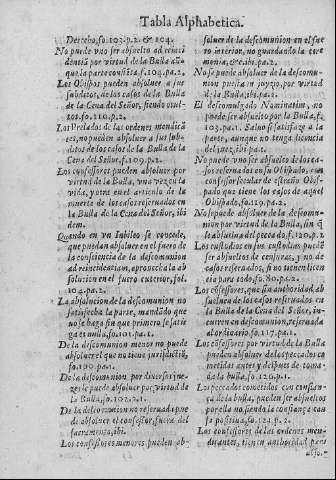 Tabla Alphabetica.
Derecho, fo. 103. p. 2. & 104.
No puede vno ser absuelto ad reinci
dentiã por virtud de la Bulla aũ
que la parte consista, f. 103. pa. 2.
Los Obispos pueden absoluer a sus
subditos, de los casos de la Bulla
de la Cena del Señor, siendo ocul-
tos. fo. 110. p. 2.
Los Prelados de las ordenes mendicã
tes, no pueden absoluer a sus sub-
ditos de los casos de la Bulla de la
Cena del Señor, f. 109. p. 2.
Los confessores pueden absoluer por
virtud de la Bulla, vna vez en la
vida, y otra en el articulo de la
muerte de los casos reseruados en
la Bulla de la Cena del Señor, ibi
dem.
Quando en vn Iubileo se concede,
que puedan absoluer en el fuero de
la consciencia de la descomunion
ad reincidentiam, aprouecha ab
solucion en el fuero exterior, fol.
104. pa. 2.
La absolucion de la descomunion no
satisfecha la parte, mandãdo que
no se haga sin que primero se satis
faga es nulla, fo. 101. pa. 1.
De la descomunion menor no puede
absoluer el que no tiene jurisdictiõ,
fo. 100. pa. 1.
De la descomunion por diuersos jue-
zes se puede absoluer por virtud de
la Bulla, fo. 102. p. 1.
De la descomunion no reseruada pue
de absoluer el confessor, fuera del
sacramento, ibi.
Los confessores menores pueden ab-
soluer de la descomunion en el fue
ro interior, no guardando la cere-
monia, &c. ibi. pa. 2.
No se puede absoluer de la descomu-
nion puesta por virtud
de la Bulla, ibi. pa. 2.
El descomulgado Nominatim, no
puede ser absuelto por la Bulla, f.
103. pa. 1. Saluo si satisfaze a la
parte, aunque no tenga licencia
del juez, ibi. pa. 1.
No puede vno ser absuelto de los ca-
sos reseruados en su Obispado, con
consentimiento particular de estraño Obis-
pado que tiene los casos de aquel
Obispado, fo. 119. pa. 2.
No se puede absoluer de la descomu-
nion por virtud de la Bulla, sin q̃
le absuelua del pecado, f. 120. p. 1.
Los custodios en sus custodias puedẽ
ser absueltos de censuras, y no de
casos reseruados, si no tienen licen-
cia para todo, f. 80. pa. 2.
Los cõfessores, que sin authoridad, ab
suelven de los casos reseruados en
la Bulla de la Cena del Señor, in-
curren en descomunion, reseruada
al ordinario, fo. 117. pa. 1.
Los confessores por virtud de la Bulla
pueden absoluer de los pecados co
metidos antes y despues de toma-
da la Bulla, fo. 120. p. 1.
Los pecados cometidos con confian-
ça de la Bulla, pueden ser absueltos
por ella no, siendo la confiança cau
sa positiua, fo. 124. p. 2.
Los confessores de las ordenes men-
dicantes, tienen authoridad para
abso-